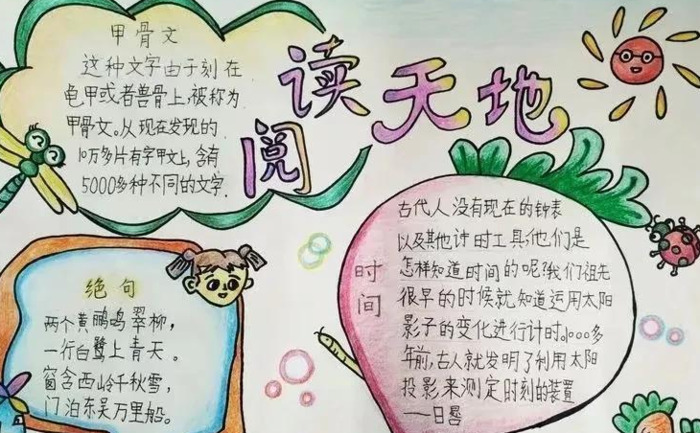 甲骨文
这种文字由于刻在
龟甲或者兽骨上,被称为
甲骨文。从现在发现的
10万多片有字甲文上,含有
5000多种不同的文字.
阅读天地
绝句
两个黄鹂鸣翠柳,
一行白鹭上青天。
窗含西岭千秋雪,
门泊东吴万里船。
时间
古代人没有现在的钟表
以及其他计时工具,他们是
怎样知道时间的呢?我们祖先
很早的时候就知道运用太阳
影子的变化进行计时。1000多
年前,古人就发明了利用太阳
投影来测定时刻的装置
—日晷